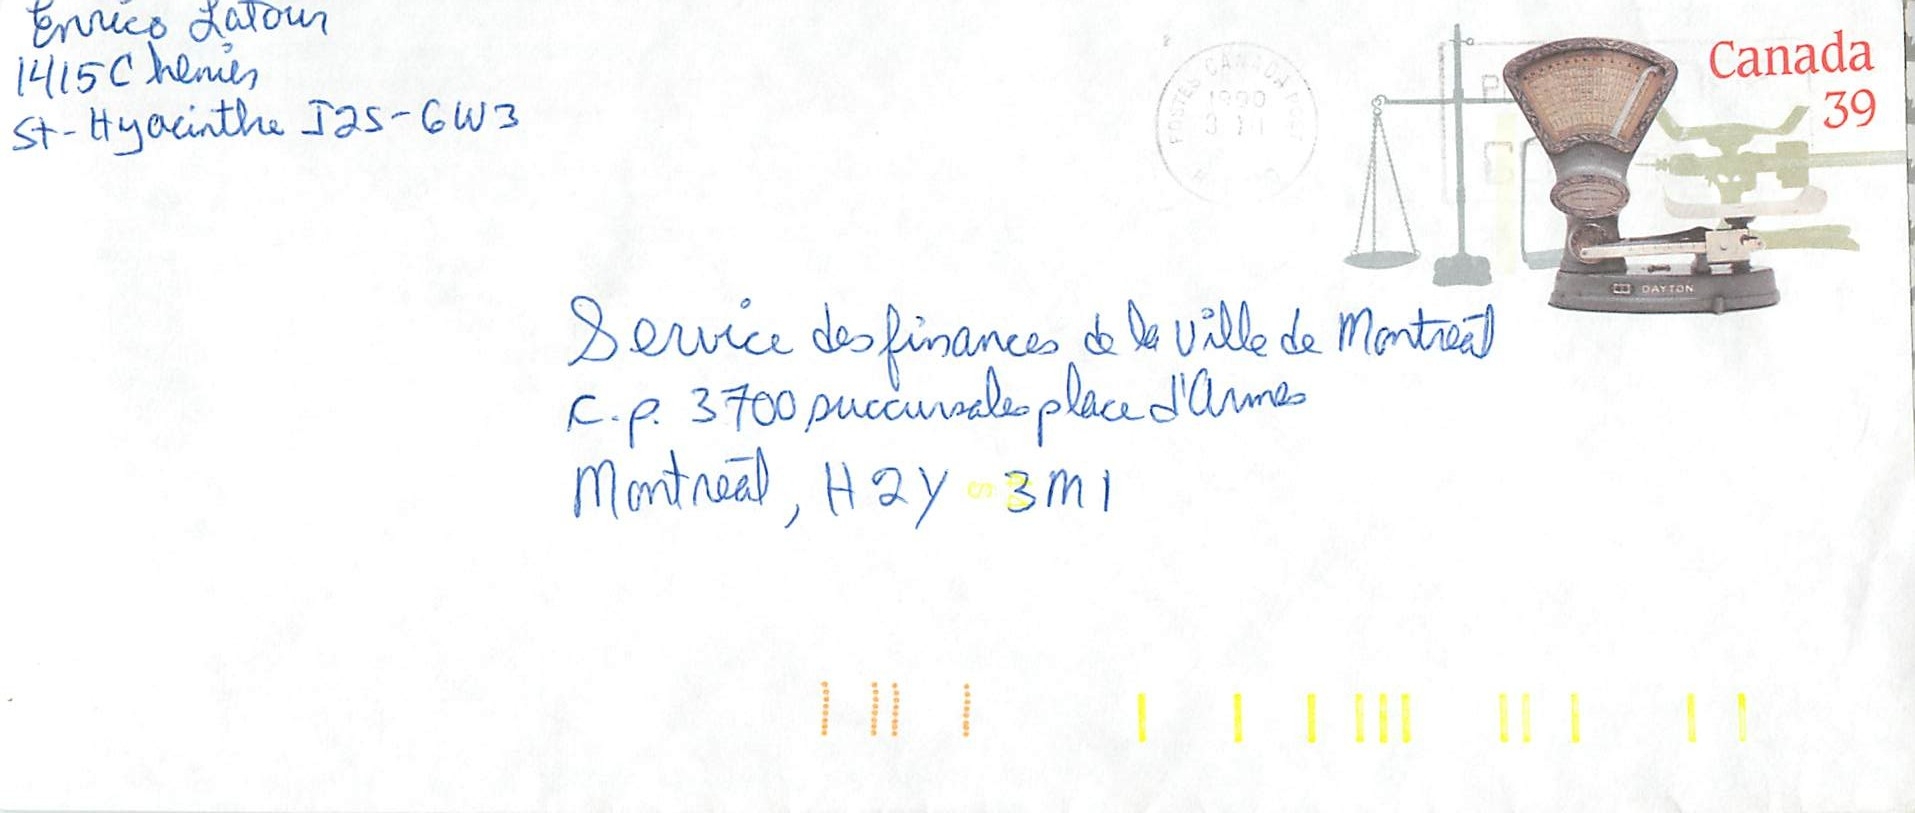 Enrico Latour
1415 Chenier
St-Hyacinthe J2S-6W3
POSTES CANADA POST
1990
Canada
39
DAYTON
Service des finances de la Ville de Montréal
c.p. 3700 succursales place d'Armes
Montréal, H2Y-3M1